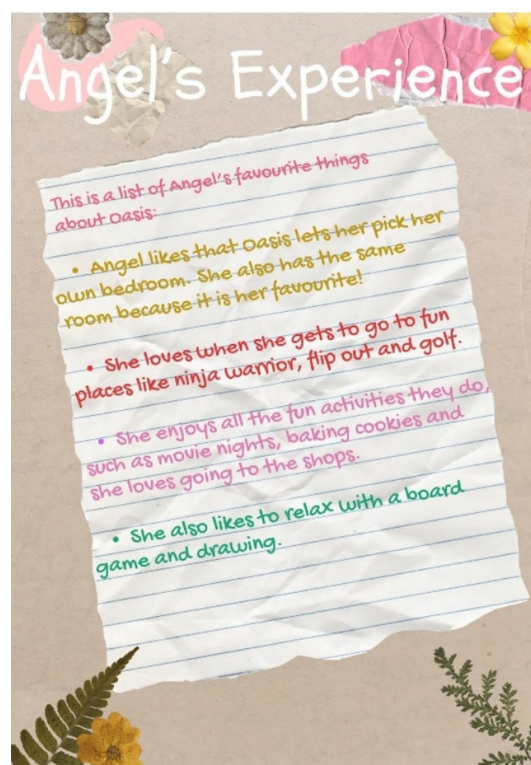 Angel's Experience
This is a list of Angel's favourite things
about Oasis:
• Angel likes that Oasis lets her pick her
own bedroom. She also has the same
room because it is her favourite!
• She loves when she gets to go to fun
places like ninja warrior, flip out and golf.
• She enjoys all the fun activities they do,
such as movie nights, baking cookies and
she loves going to the shops.
• She also likes to relax with a board
game and drawing.